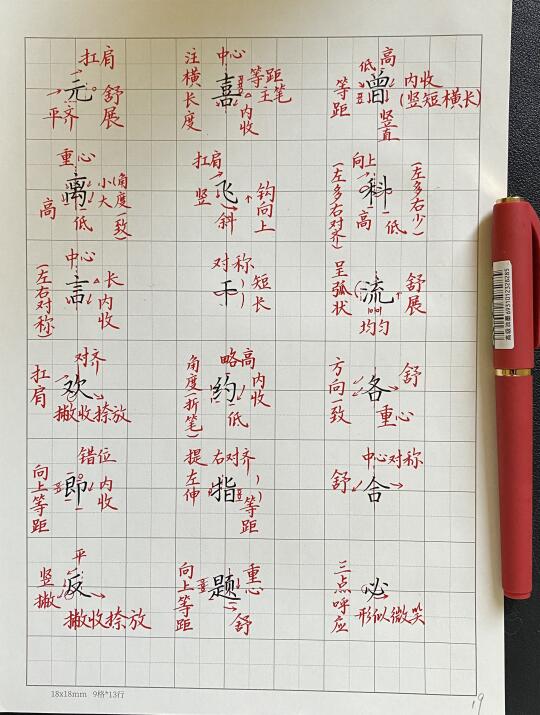 扛肩
元
舒展
平齐
中心
注横长度
嘉
等距
主笔
内收
低 高
等距
曾
内收
(竖短横长)
竖直
重心
离
小大
(角度一致)
高
低
扛肩
竖
飞
钩向上
斜
向上
(左多右对齐)
科
(左多右少)
高 低
中心
(左右对称)
言
长
内收
对称
干
短长
呈弧状
流
舒展
均匀
对齐
扛肩
欢
撇收捺放
略高
角度(折笔)
约
内收
低
方向一致
各
舒
重心
错位
向上等距
即
内收
右对齐
提左伸
指
等距
中心对称
舒
舍
平
竖撇
反
撇收捺放
向上等距
题
重心
舒
三点呼应
必
形似微笑
高级双珠
6951012328285
18x18mm 9格*13行
19